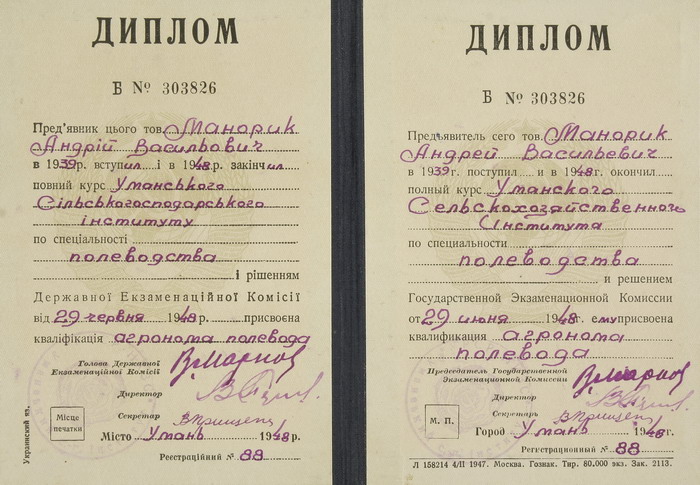 ДИПЛОМ
Б № 303826
Пред'явник цього тов. Манорик
Андрій Васильович
в 1939 р. вступил і в 1948 р. закінчил
повний курс Уманського
Сільськогосподарського
інституту
по спеціальності
полеводства
і рішенням
Державної Екзаменаційної Комісії
від 29 червня 1948 р. присвоєна
кваліфікація агронома полевода
Голова Державної
Екзаменаційної Комісії
Директор
Секретар
Місце
печатки
Місто Умань 1948 р.
Реєстраційний № 88
Украинский яз.
ДИПЛОМ
Б № 303826
Предъявитель сего тов. Манорик
Андрей Васильевич
в 1939 г. поступил и в 1948 г. окончил
полный курс Уманского
Сельскохозяйственного
Института
по специальности
полеводства
и решением
Государственной Экзаменационной Комиссии
от 29 июня 1948 г. ему присвоена
квалификация агронома
полевода
Председатель Государственной
Экзаменационной Комиссии
Директор
Секретарь
М. П.
Город Умань 1948 г.
Регистрационный № 88
Л 158214 4/II 1947. Москва. Гознак. Тир. 80.000 экз. Зак. 2113.